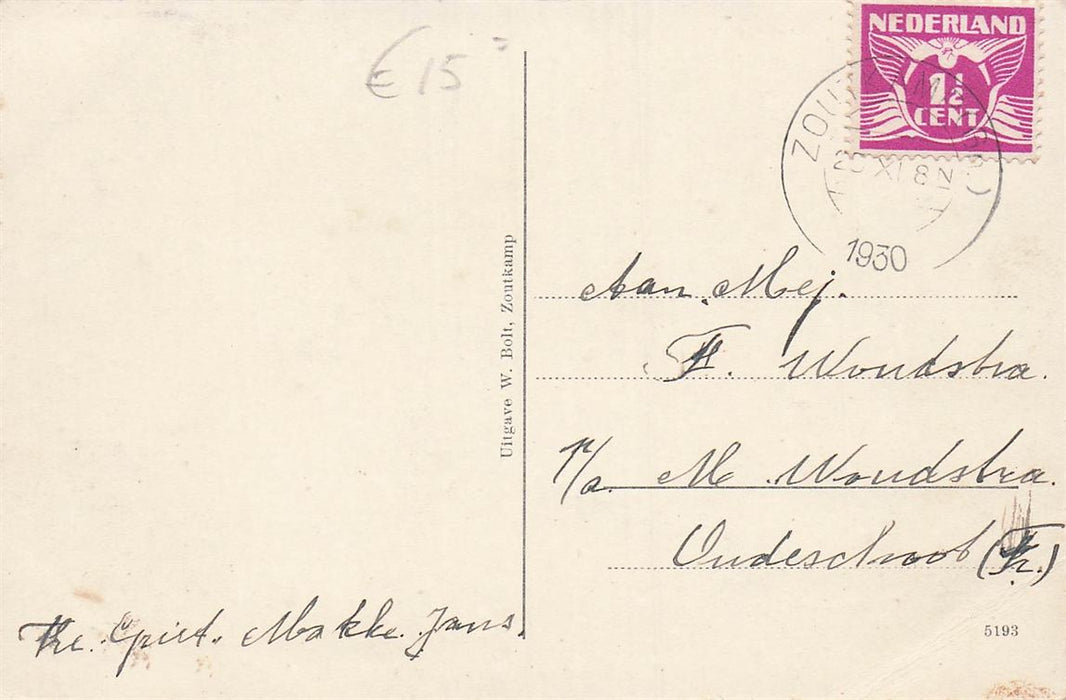 € 15
NEDERLAND
1½
CENT
ZOUTKAMP (Gr.)
XI 8 N
1930
Uitgave W. Bolt, Zoutkamp
Aan Mej.
F. Woudstra.
p/a M. Woudstra.
Oudeschoot (Fr.)
Makke Jans.
5193